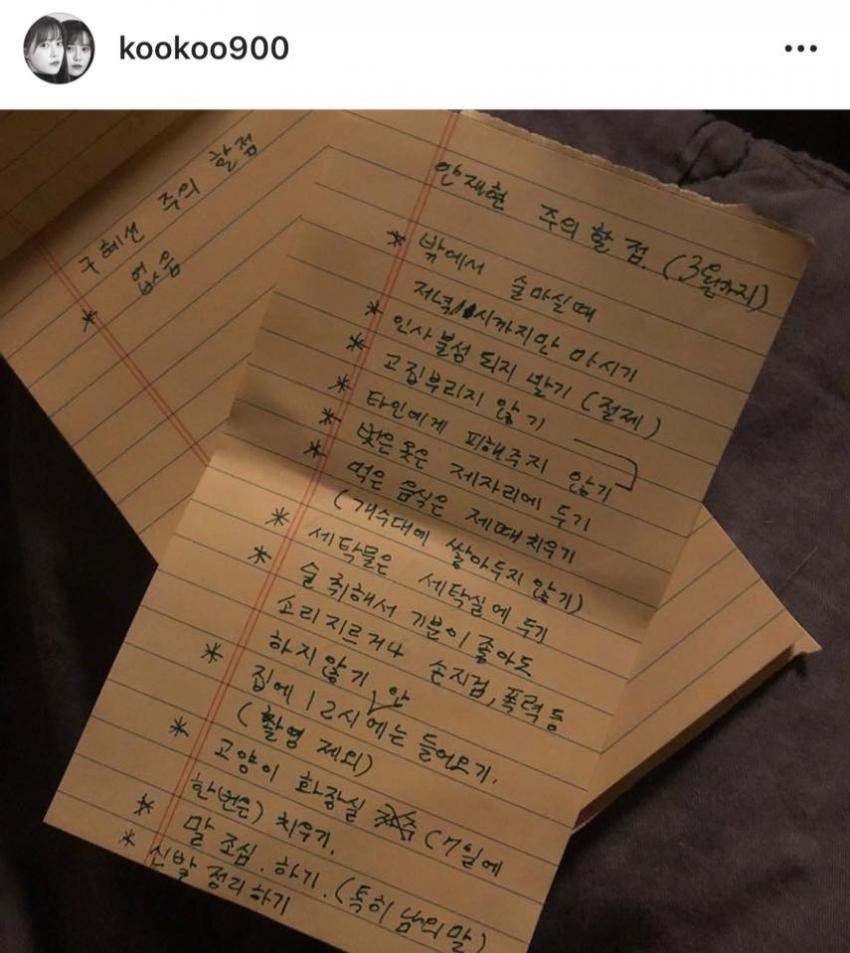 kookoo900
구혜선 주의 할점
* 없음
안재현 주의 할 점. (3월까지)
* 밖에서 술마실때
저녁 11시까지만 마시기
* 인사불성 되지 말기 (절제)
* 고집부리지 않기
* 타인에게 피해주지 않기
* 벗은 옷은 제자리에 두기
* 먹은 음식은 제때 치우기
(개수대에 쌓아두지 않기)
* 세탁물은 세탁실에 두기
* 술 취해서 기분이 좋아도
소리지르거나 손지검, 폭력 등
하지 않기
* 집에 12시 안에는 들어오기.
(촬영 제외)
* 고양이 화장실 (7일에
한번은) 치우기.
* 말 조심. 하기. (특히 남의 말)
* 신발 정리하기